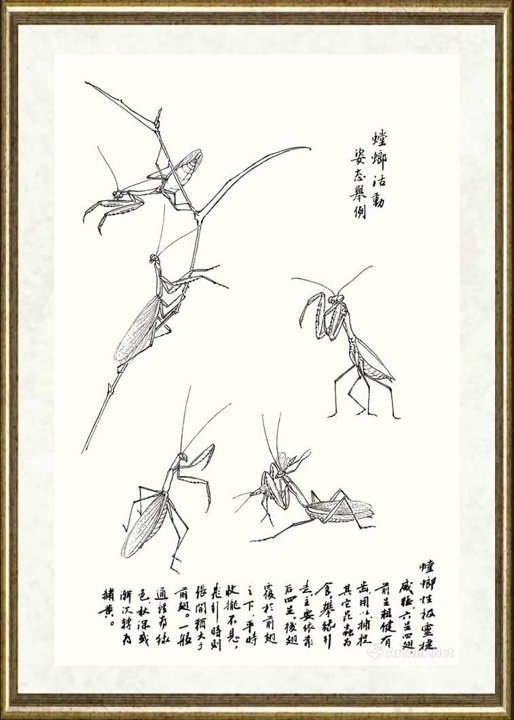 螳螂活動
姿态舉例
螳螂性极靈捷
威猛六足四翅
前足粗健有
齿用以捕捉
其它昆虫为
食,攀缘行
走主要依靠
后四足。後翅
覆於前翅
之下,平時
收攏不見,
飛行時則
張開稍大于
前翅。一般
通体为綠
色秋深或
漸次轉為
赭黄。